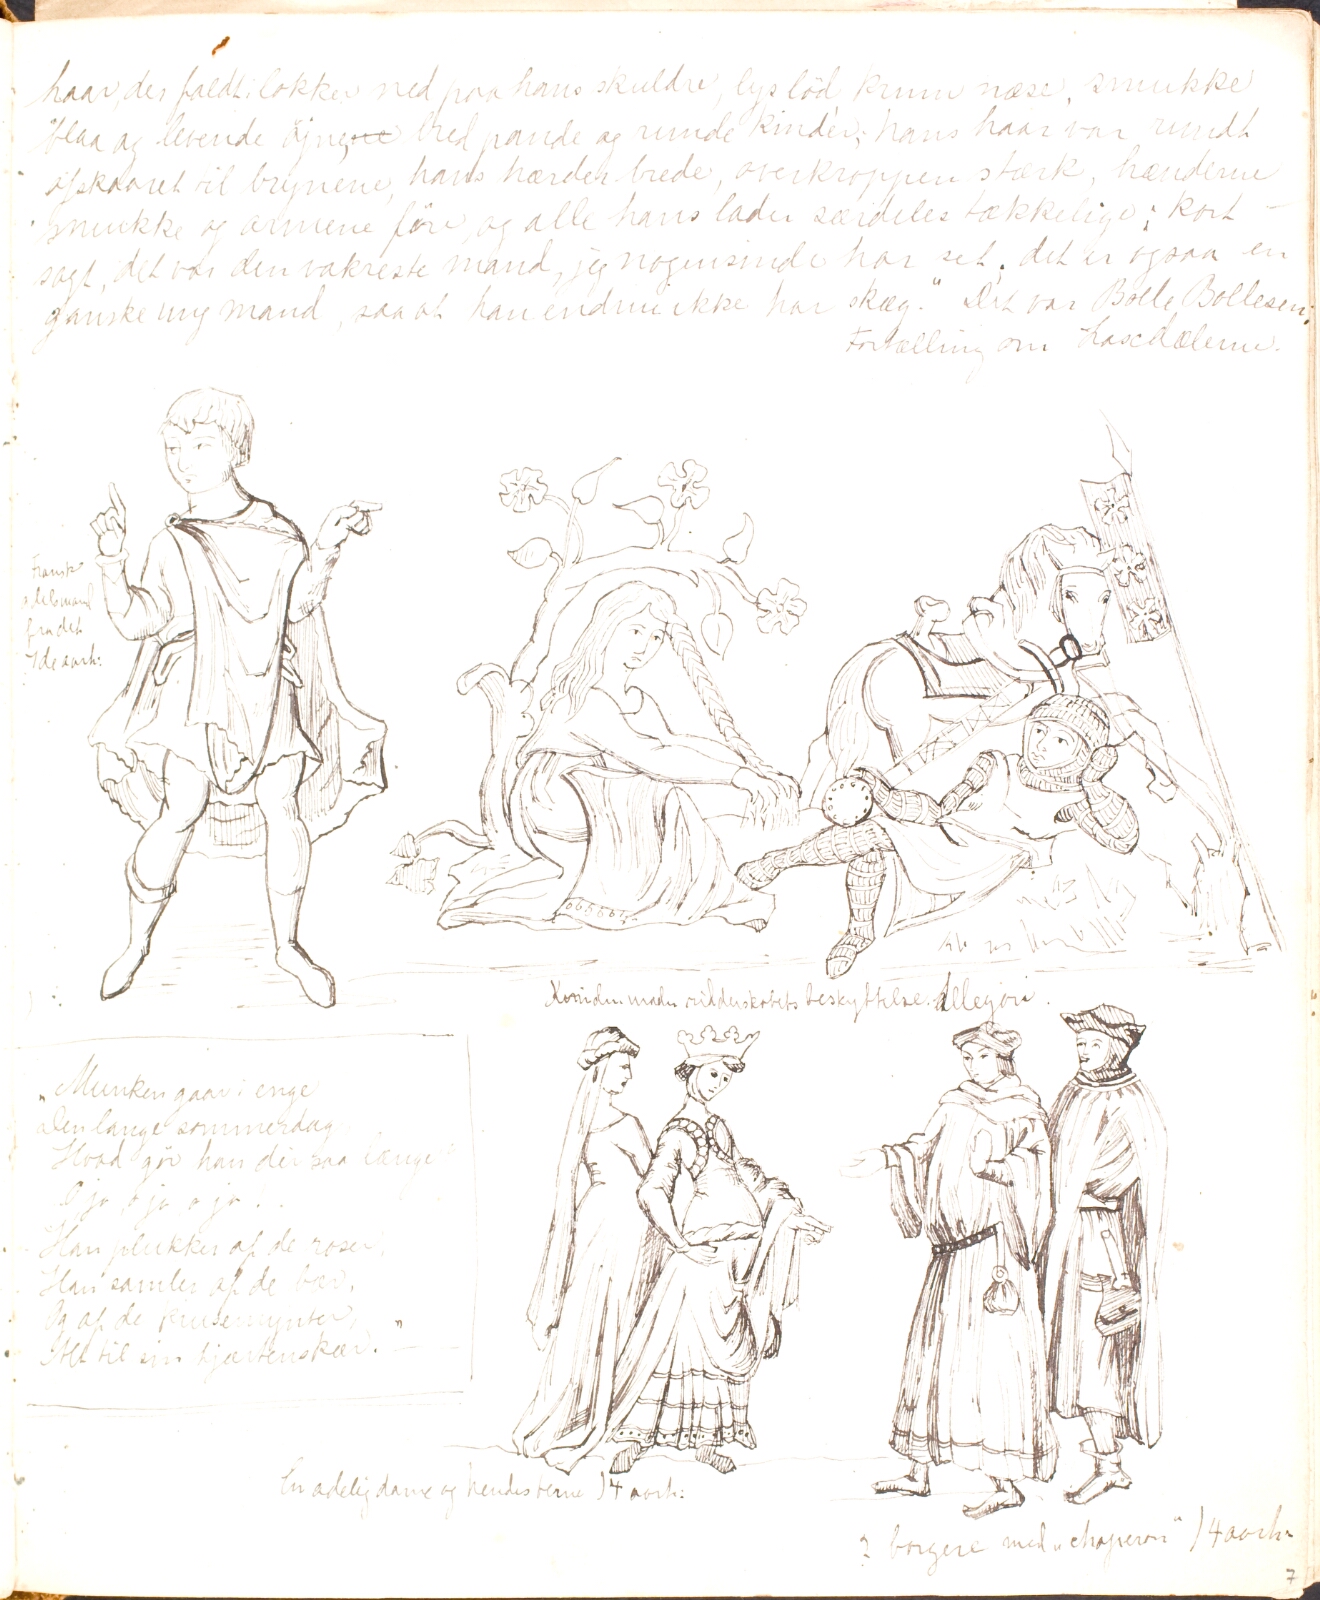 haar, der faldt i lokker ned paa hans skuldre, lys lød, krum næse, smukke
blaa og levende øjne, bred pande og runde kinder; hans haar var rundt
afskaaret til brynene, hans hærder brede, overkroppen stærk, hænderne
smukke og armene føre, og alle hans lader særdeles tækkelige; kort
sagt, det var den vakreste mand, jeg nogensinde har set; det er ogsaa en
ganske ung mand, saa at han endnu ikke har skæg." Det var Bolle Bollesen;
Fortælling om Laxdælerne.
Fransk
adelsmand
fra det
7de aarh:
Kvinden under ridderskabets beskyttelse. Allegori.
"Munken gaar i enge
den lange sommerdag
Hvad gør han der saa længe?
O jo, o jo, o jo!
Han plukker af de roser,
Han samler af de bær,
Og af de krusemynter,
Alt til sin hjærtenskær."
En adelig dame og hendes terne 14 aarh:
2 borgere med "chaperon" 14 aarh:
7